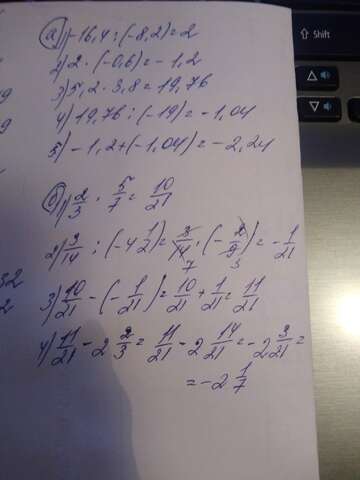 Shift
а) 1) -16,4 : (-8,2) = 2
2) 2 · (-0,6) = -1,2
3) 5,2 · 3,8 = 19,76
4) 19,76 : (-19) = -1,04
5) -1,2 + (-1,04) = -2,24
б) 1) 2/3 · 5/7 = 10/21
2) 3/14 : (-4 1/2) = 3/14 · (-2/9) = -1/21
7 3
3) 10/21 - (-1/21) = 10/21 + 1/21 = 11/21
4) 11/21 - 2 2/3 = 11/21 - 2 14/21 = -2 3/21 =
= -2 1/7